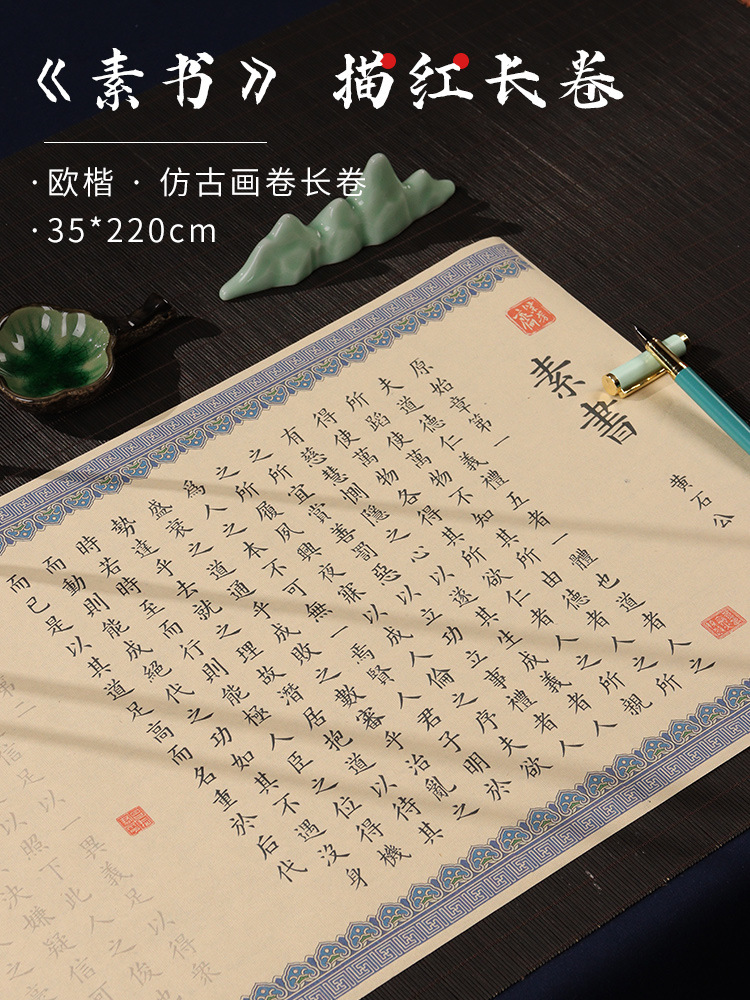 《素书》 描红长卷
·欧楷 · 仿古画卷长卷
·35*220cm
素書
黄石公
原始章第一
夫道德仁義禮五者一體也道者人之
所蹈使萬物不知其所由德者人之所
得使萬物各得其所欲仁者人之所親
有慈慧惻隱之心以遂其生成義者人
之所宜賞善罰惡以立功立事禮者人
之所履夙興夜寐以成人倫之序夫欲
為人之本不可無一焉賢人君子明於
盛衰之道通乎成敗之數審乎治亂之
勢達乎去就之理故潛居抱道以待其
時若時至而行則能極人臣之位得機
而動則能成絕代之功如其不遇沒身
而已是以其道足高而名重於后代
第二
信足以異義足以得眾
以照下此人之俊
決嫌疑信可